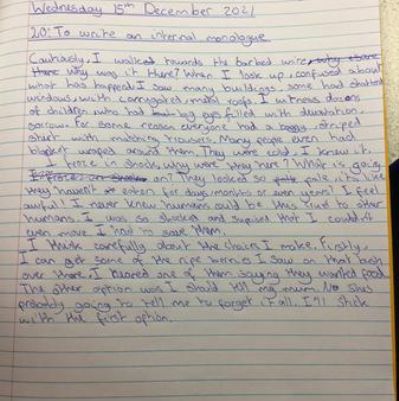 Wednesday 15th December 2021
LO: To write an internal monologue
Cautiously, I walked towards the barbed wire, why was it there? When I look up, confused about
what has happened. I saw many buildings, some had shutted
windows, with corrugated, metal roofs. I witness dozens
of children who had big eyes filled with devastation,
sorrow. For some reason everyone had a baggy, striped
shirt with matching trousers. Many people even had
blanket wrapped around them. They were cold. I knew it.
I froze in shock, why were they here? What is going
on? They looked so pale, it's like
they haven't eaten for days/months or even years! I feel
awful! I never knew humans could be this cruel to other
humans. I was so shocked and suprised that I couldn't
even move. I had to save them.
I think carefully about the choices I make. Firstly,
I can get some of the ripe berries I saw on that bush
over there. I heared one of them saying they wanted food.
The other option was I should tell my mum. No she's
probably going to tell me to forget it all. I'll stick
with the first option.